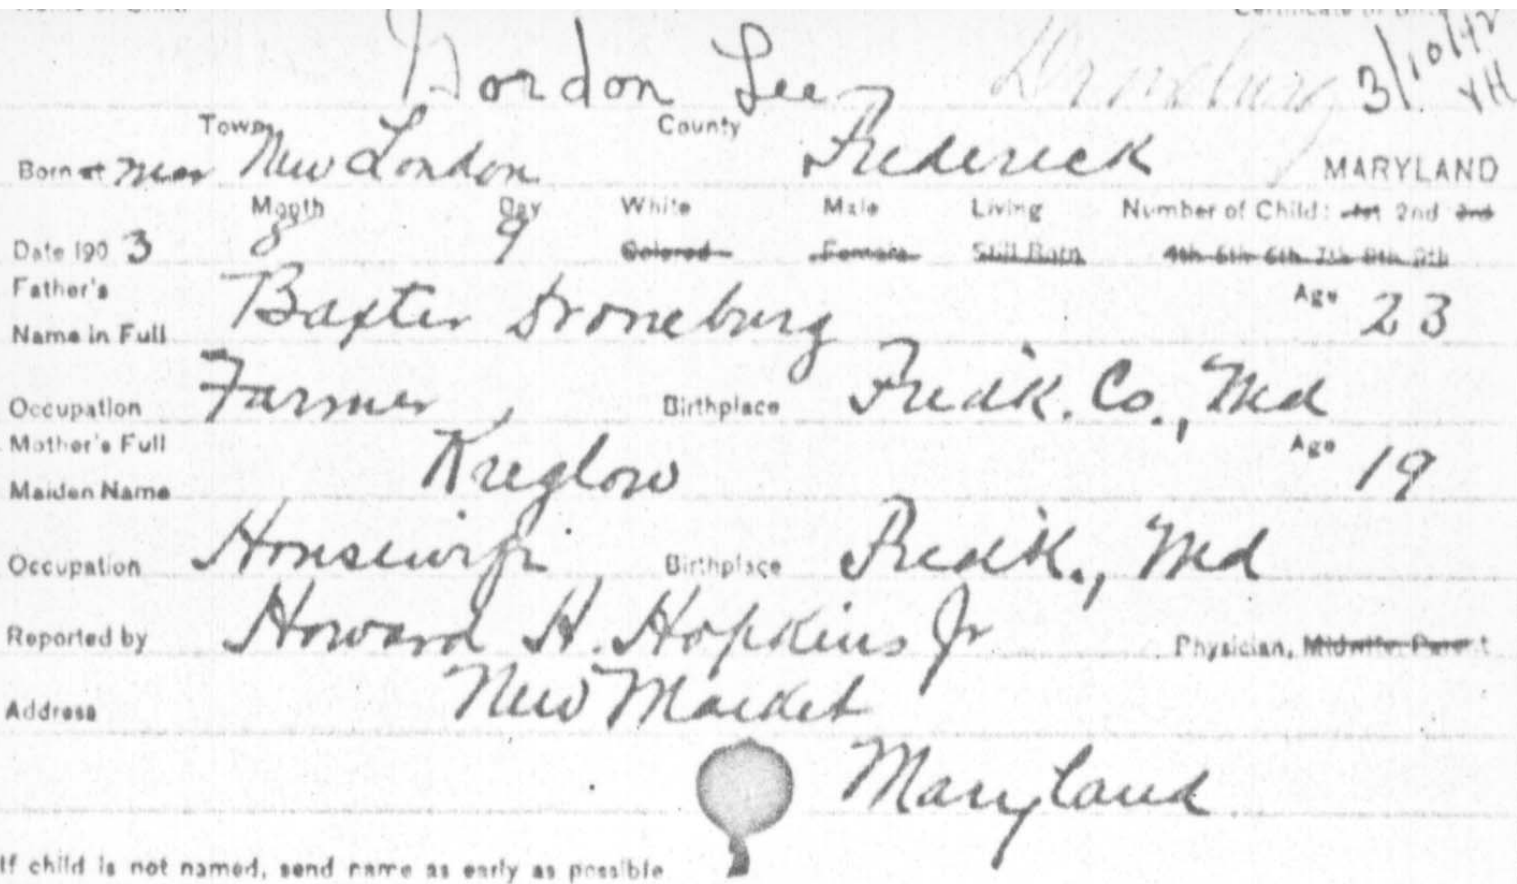 Gordon Lee Droneburg 3/10/42
VH
Town County
Born at near New London Frederick MARYLAND
Month Day White Male Living Number of Child: 1st 2nd 3rd
Date 190 3 8 9 Colored Female Still Born 4th 5th 6th 7th 8th 9th
Father's Age 23
Name in Full Baxter Droneburg
Occupation Farmer, Birthplace Fredk. Co., Md
Mother's Full Age 19
Maiden Name Kreglow
Occupation Housewife Birthplace Fredk., Md
Reported by Howard H. Hopkins Jr Physician, Midwife, Parent
Address New Market
Maryland
If child is not named, send name as early as possible